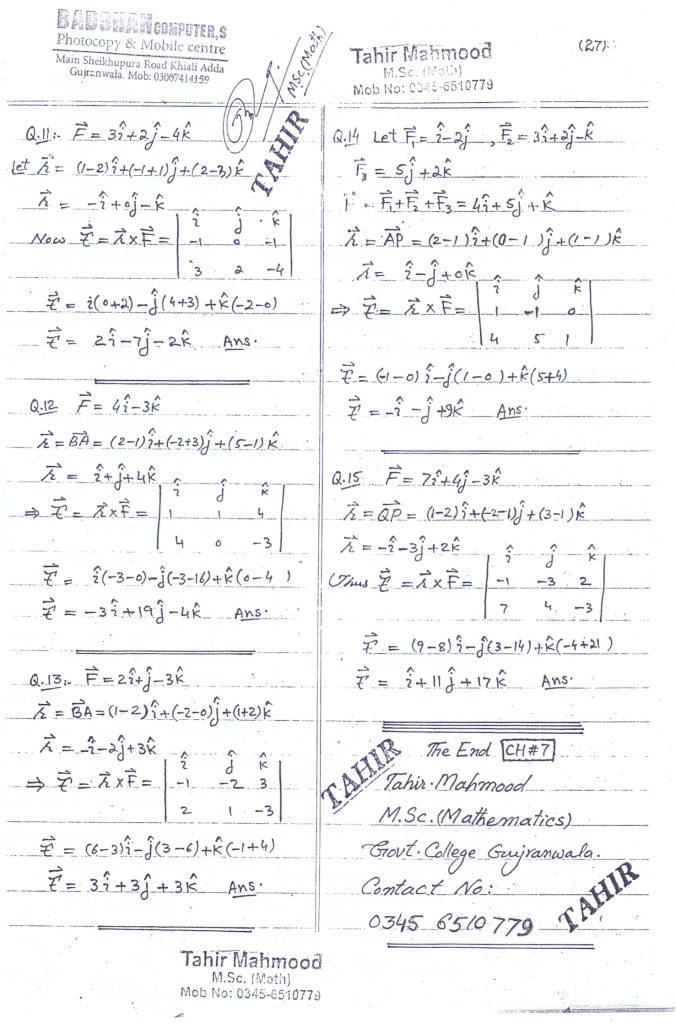 BADSHAH COMPUTER,S
Photocopy & Mobile centre
Main Sheikhupura Road Khiali Adda
Gujranwala. Mob: 03007414159
M.Sc.(Math)
TAHIR
Tahir Mahmood
M.Sc. (Math)
Mob No: 0345-6510779
(27)
Q.11:- F⃗ = 3î+2ĵ-4k̂
let r⃗ = (1-2)î+(-1+1)ĵ+(2-3)k̂
r⃗ = -î+0ĵ-k̂
Now τ⃗ = r⃗ x F⃗ = | î ĵ k̂ |
| -1 0 -1 |
| 3 2 -4 |
τ⃗ = i(0+2)-ĵ(4+3)+k̂(-2-0)
τ⃗ = 2î-7ĵ-2k̂ Ans.
Q.12 F⃗ = 4î-3k̂
r⃗ = BA⃗ = (2-1)î+(-2+3)ĵ+(5-1)k̂
r⃗ = î+ĵ+4k̂
⇒ τ⃗ = r⃗ x F⃗ = | î ĵ k̂ |
| 1 1 4 |
| 4 0 -3 |
τ⃗ = î(-3-0)-ĵ(-3-16)+k̂(0-4)
τ⃗ = -3î+19ĵ-4k̂ Ans.
Q.13:- F⃗ = 2î+ĵ-3k̂
r⃗ = BA⃗ = (1-2)î+(-2-0)ĵ+(1+2)k̂
r⃗ = -î-2ĵ+3k̂
⇒ τ⃗ = r⃗ x F⃗ = | î ĵ k̂ |
| -1 -2 3 |
| 2 1 -3 |
τ⃗ = (6-3)î-ĵ(3-6)+k̂(-1+4)
τ⃗ = 3î+3ĵ+3k̂ Ans.
Q.14 Let F⃗₁ = î-2ĵ , F⃗₂ = 3î+2ĵ-k̂
F⃗₃ = 5ĵ+2k̂
F⃗ = F⃗₁+F⃗₂+F⃗₃ = 4î+5ĵ+k̂
r⃗ = AP⃗ = (2-1)î+(0-1)ĵ+(1-1)k̂
r⃗ = î-ĵ+0k̂
⇒ τ⃗ = r⃗ x F⃗ = | î ĵ k̂ |
| 1 -1 0 |
| 4 5 1 |
τ⃗ = (-1-0)î-ĵ(1-0)+k̂(5+4)
τ⃗ = -î-ĵ+9k̂ Ans.
Q.15 F⃗ = 7î+4ĵ-3k̂
r⃗ = QP⃗ = (1-2)î+(-2-1)ĵ+(3-1)k̂
r⃗ = -î-3ĵ+2k̂
Thus τ⃗ = r⃗ x F⃗ = | î ĵ k̂ |
| -1 -3 2 |
| 7 4 -3 |
τ⃗ = (9-8)î-ĵ(3-14)+k̂(-4+21)
τ⃗ = î+11ĵ+17k̂ Ans.
The End CH#7
TAHIR
Tahir.Mahmood
M.Sc.(Mathematics)
Govt. College Gujranwala.
Contact No:
0345 6510779
TAHIR
Tahir Mahmood
M.Sc. (Math)
Mob No: 0345-6510779